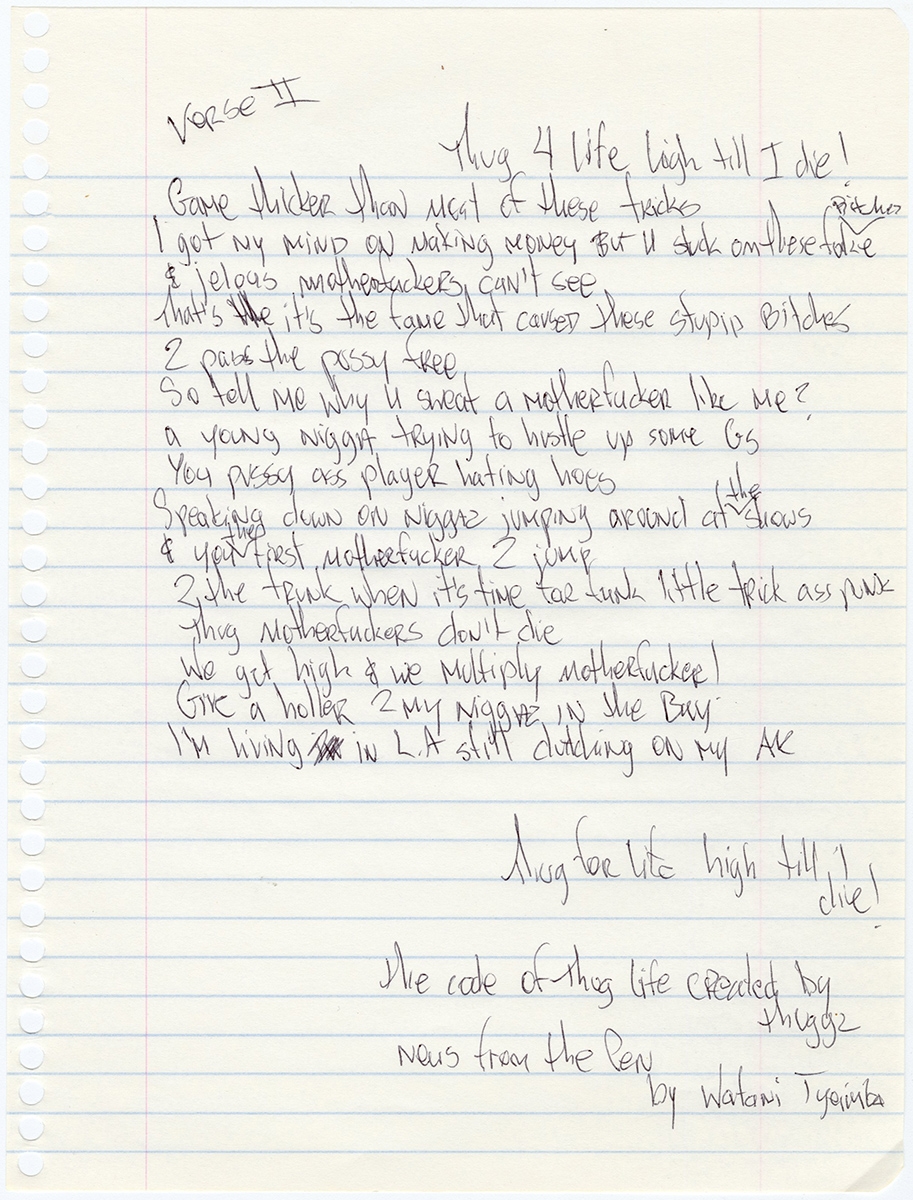 Verse II
Thug 4 life high till I die!
Game thicker than most of these tricks
Bitches
I got my mind on making money But U stuck on these fake
& jelous motherfuckers can't see
That's it's the fame that caused these stupid Bitches
2 pass the pussy free
So tell me why U sweat a motherfucker like me?
a young nigga trying to hustle up some Gs
You pussy ass player hating hoes
the
Speaking down on niggaz jumping around at shows
the
& you first motherfucker 2 jump
2 the trunk when it's time for funk little trick ass punk
Thug motherfuckers don't die
We get high & we multiply motherfucker!
Give a holler 2 my niggaz in the Bay
I'm living in L.A still clutching on my AK
Thug for life high till I
die!
The code of Thug life created by
thuggz
News from the Pen
by Watani Tyeimba